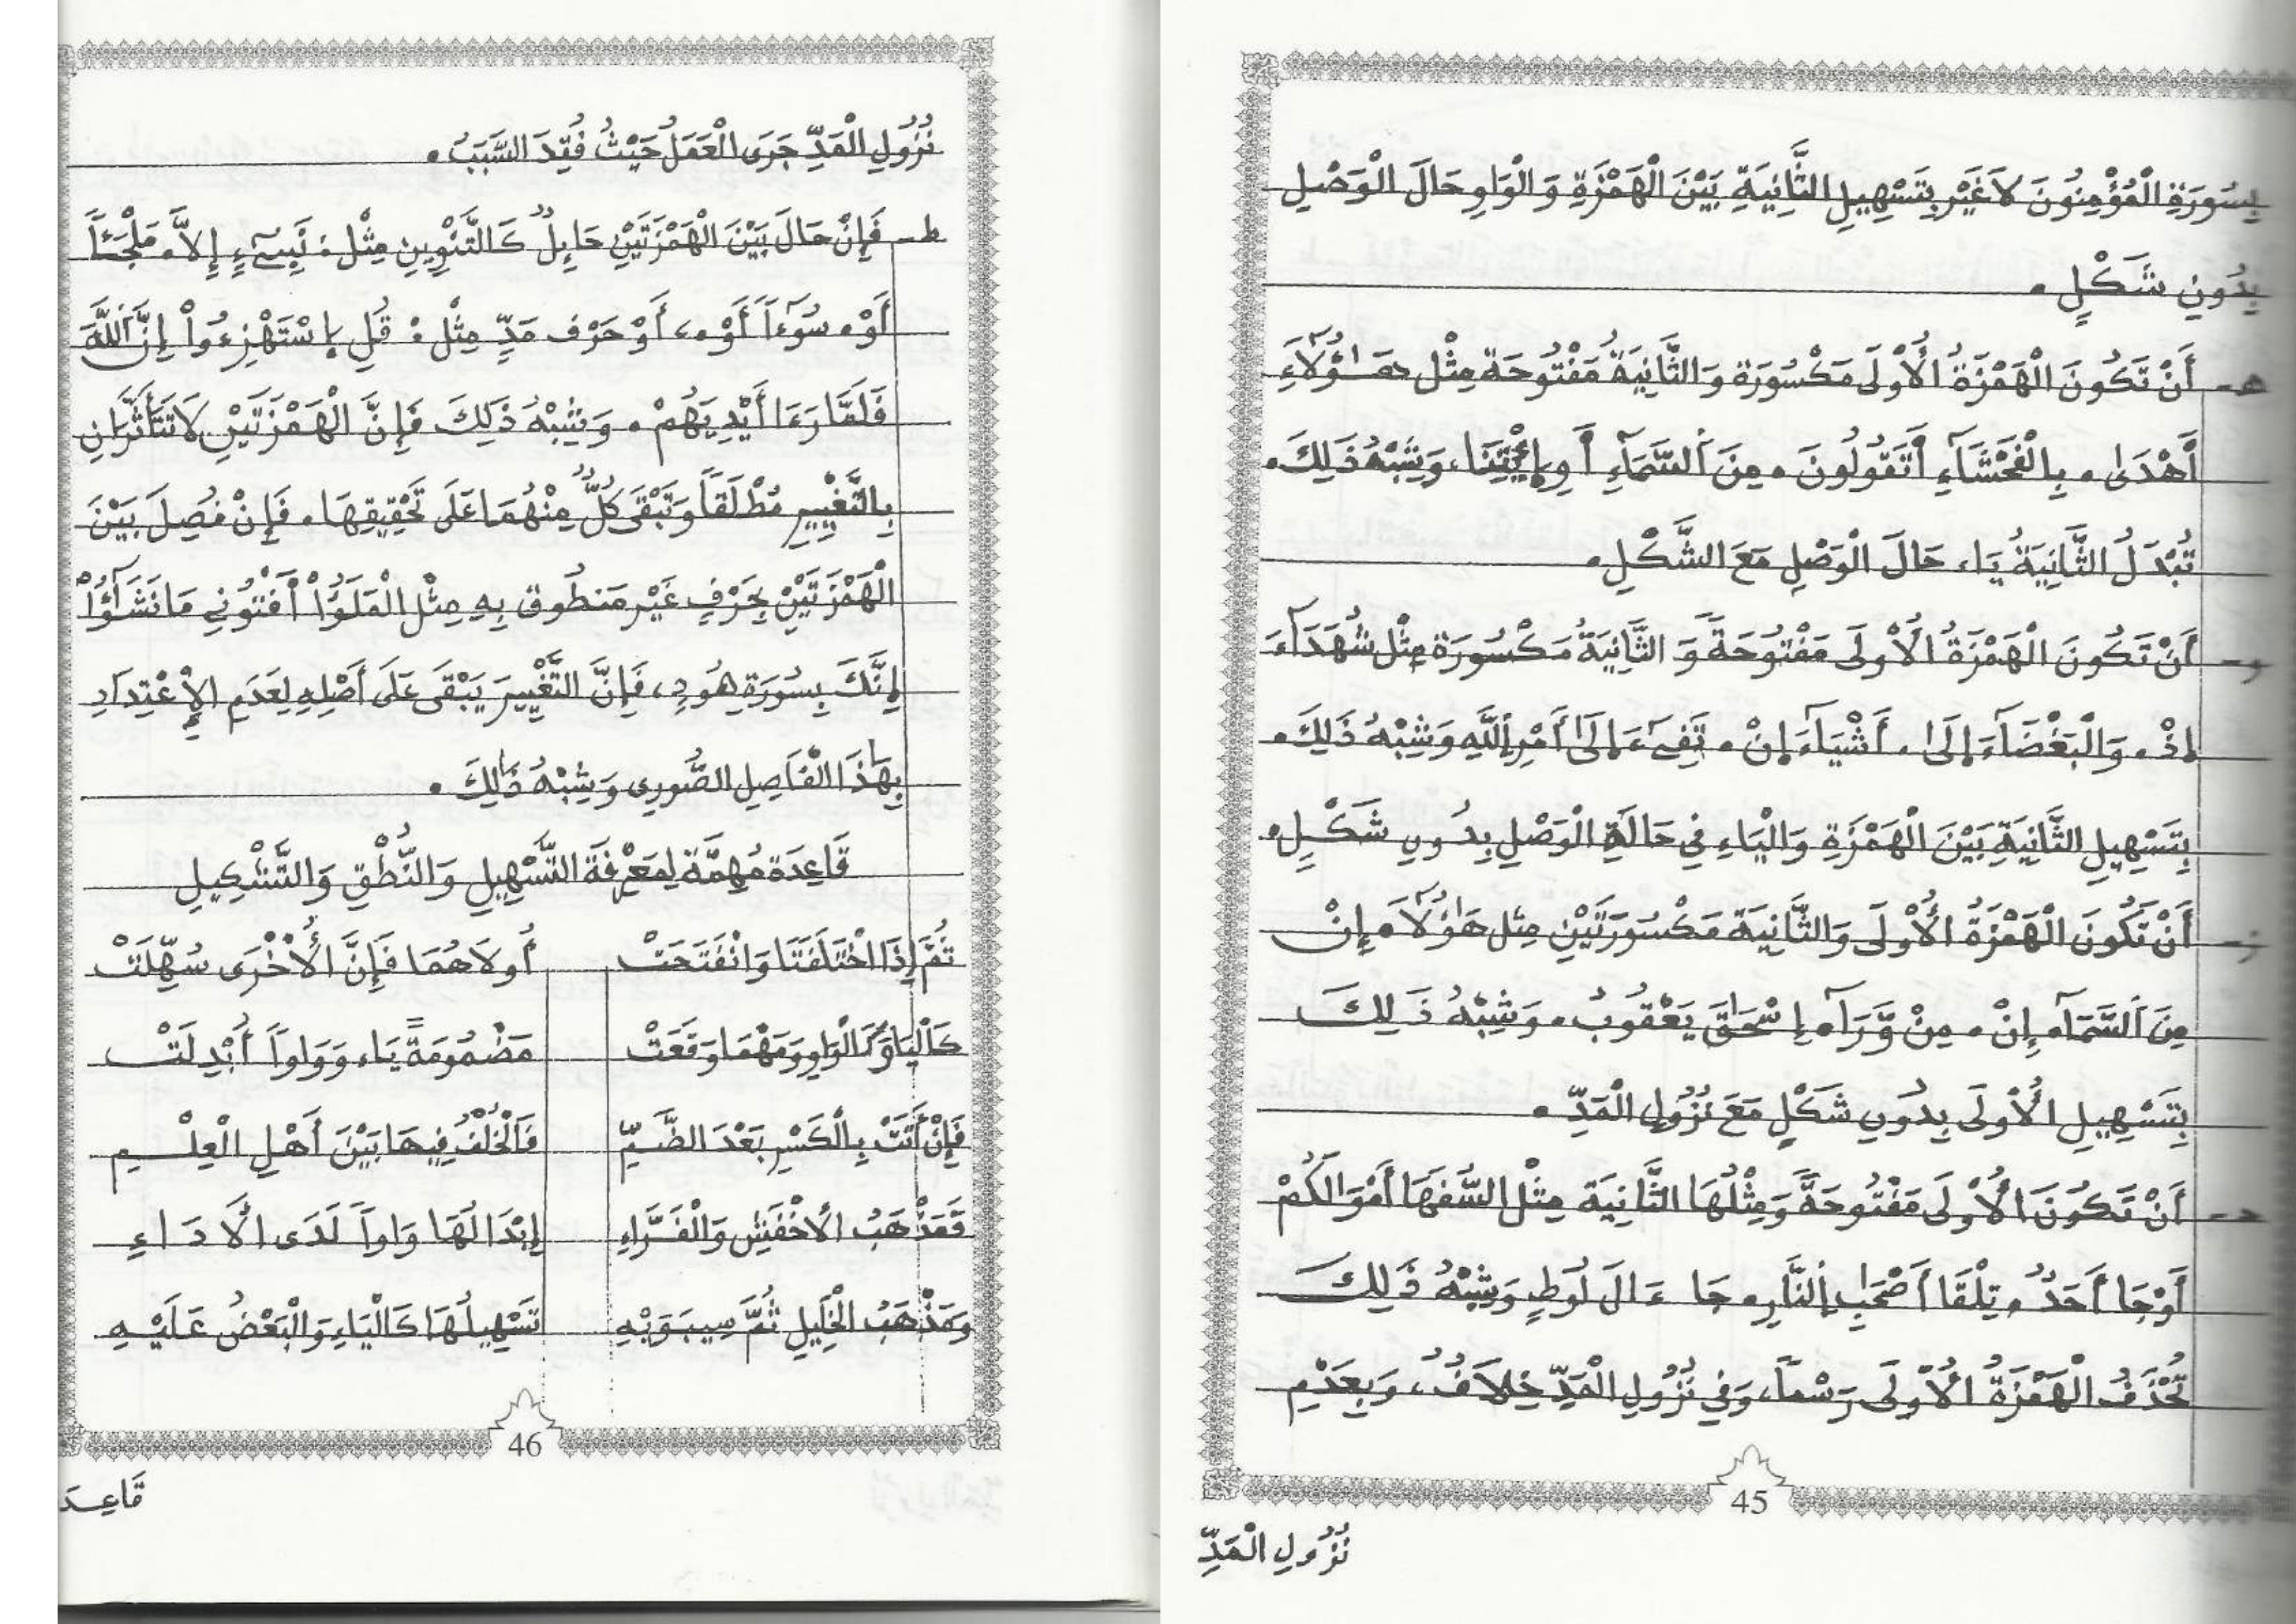 بِسُورَةِ الْمُؤْمِنُونَ لاَغَيْر بِتَسْهِيلِ الثَّانِيَةِ بَيْنَ الْهَمْزَةِ وَالْوَاوِ حَالَ الْوَصْلِ
بِدُونِ شَكْلٍ .
هـ - أَنْ تَكُونَ الْهَمْزَةُ الْأُوْلَى مَكْسُورَة وَالثَّانِيَةُ مَفْتُوحَة مِثْل هَـٰؤُلَآءِ
أَهْدَىٰ . بِالْفَحْشَآءِ أَتَقُولُونَ . مِنَ السَّمَآءِ أَوِ اِئْتِنَا، وَشِبْهُ ذَلِكَ .
تُبْدَلُ الثَّانِيَةُ يَاء حَالَ الْوَصْلِ مَعَ الشَّكْلِ .
و - أَنْ تَكُونَ الْهَمْزَةُ الْأُوْلَى مَفْتُوحَةً وَ الثَّانِيَةُ مَكْسُورَة مِثْل شُهَدَآءَ
إِذْ . وَالْبَغْضَآءَ إِلَىٰ . أَشْيَآءَ إِنْ . تَفِيٓءَ إِلَىٰٓ أَمْرِ اللَّهِ وَشِبْهُ ذَلِكَ .
بِتَسْهِيلِ الثَّانِيَةِ بَيْنَ الْهَمْزَةِ وَالْيَاءِ فِي حَالَةِ الْوَصْلِ بِدُونِ شَكْلٍ .
ز - أَنْ تَكُونَ الْهَمْزَةُ الْأُوْلَى وَالثَّانِيَة مَكْسُورَتَيْنِ مِثل هَٰؤُلَآ . إِنْ
مِنَ السَّمَآ . إِنْ . مِنْ وَّرَآ . إِسْحَٰقَ يَعْقُوبُ . وَشِبْهُ ذَلِكَ
بِتَسْهِيلِ الْأُوْلَى بِدُونِ شَكْلٍ مَعَ نُزُولِ الْمَدِّ .
ح - أَنْ تَكُونَ الْأُوْلَى مَفْتُوحَةً وَمِثْلُهَا الثَّانِيَة مِثْل السُّفَهَا أَمْوَالَكُمْ
أَوْ جَا أَحَدٌ . تِلْقَا أَصْحَٰبِ النَّارِ . جَا ءَالَ لُوطٍ وَشِبْهُ ذَلِكَ
تُحْذَفُ الْهَمْزَةُ الْأُوْلَى رَسْماً، وَفِي نُزُولِ الْمَدِّ خِلاَفٌ، وَبِعَدَمِ
45
نُزُولِ الْمَدِّ
نُزُولِ الْمَدِّ جَرَى الْعَمَلُ حَيْثُ فُقِدَ السَّبَبُ .
ط - فَإِنْ حَالَ بَيْنَ الْهَمْزَتَيْنِ حَايِلٌ كَالتَّنْوِينِ مِثْل : شَيْءٍ إِلاَّ . مَلْجَـًٔا
أَوْ . سُوٓءاً أَوْ .، أَوْ حَرْف مَدٍّ مِثْل : قُلِ اِسْتَهْزِءُواْ إِنَّ اللَّهَ
فَلَمَّا رَءَا أَيْدِيَهُمْ . وَشِبْهُ ذَلِكَ فَإِنَّ الْهَمْزَتَيْنِ لَا تَتَأَثَّرَانِ
بِالتَّغْيِيرِ مُطْلَقاً وَتَبْقَى كُلٌّ مِنْهُمَا عَلَى تَحْقِيقِهَا . فَإِنْ فُصِلَ بَيْنَ
الْهَمْزَتَيْنِ بِحَرْفٍ غَيْر مَنطُوق بِهِ مِثْل الْمَلَؤُاْ أَفْتُونِي مَا نَشَٰٓؤُاْ
إِنَّكَ بِسُورَةِ هُودٍ، فَإِنَّ التَّغْيِيرَ يَبْقَى عَلَى أَصْلِهِ لِعَدَمِ الْإِعْتِدَادِ
بِهَٰذَا الْفَاصِلِ الصُّورِي وَشِبْهُ ذَٰلِكَ .
قَاعِدَة مُهِمَّة لِمَعْرِفَةِ التَّسْهِيلِ وَالنُّطْقِ وَالتَّشْكِيلِ
ثُمَّ إِذَا اخْتَلَفَتَا وَانْفَتَحَتْ أُولاَهُمَا فَإِنَّ الْأُخْرَى سُهِّلَتْ
كَالْيَا وَكَالْوَاوِ وَمَهْمَا وَقَعَتْ مَضْمُومَةً يَاء وَوَاواً أُبْدِلَتْ
فَإِنْ أَتَتْ بِالْكَسْرِ بَعْدَ الضَّمِّ فَالْخُلْفُ فِيهَا بَيْنَ أَهْلِ الْعِلْمِ
فَمَذْهَبُ الْأَخْفَشِ وَالْفَرَّاءِ إِبْدَالُهَا وَاواً لَدَى الْأَدَاءِ
وَمَذْهَبُ الْخَلِيلِ ثُمَّ سِيبَوَيْهِ تَسْهِيلُهَا كَالْيَاءِ وَالْبَعْضُ عَلَيْهِ
46
قَاعِدَ